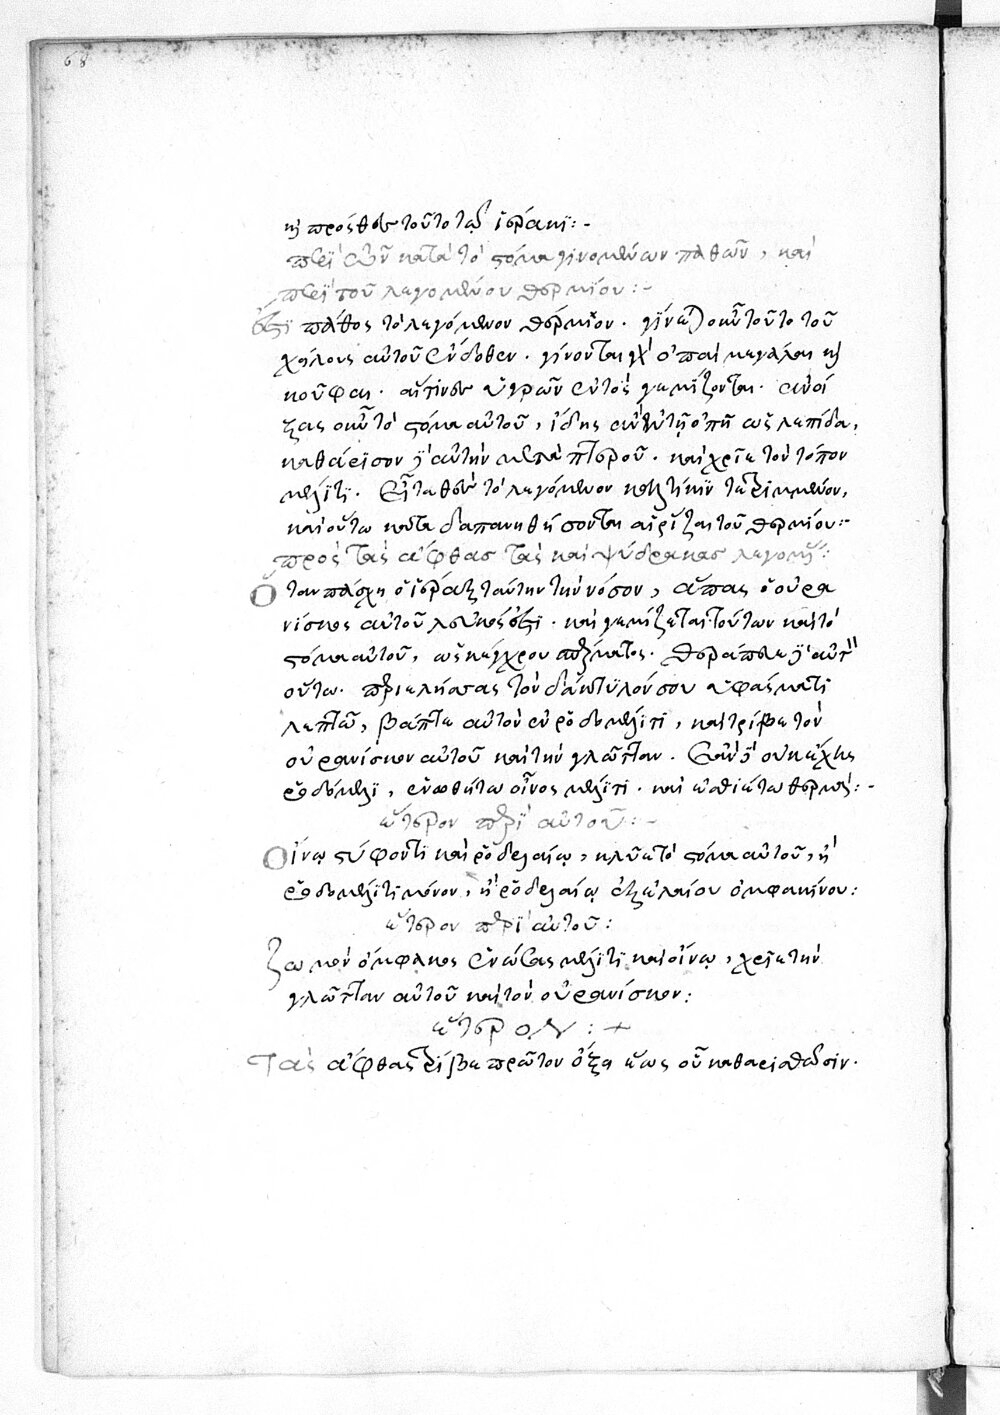 68
καὶ πρόσθες τοῦτο τῷ ἱέρακι:-
περὶ τῶν κατὰ τὸ στόμα γινομένων παθῶν, καὶ
περὶ τοῦ λεγομένου θερμίου:-
ἔστι πάθος τὸ λεγόμενον θέρμιον. γίνεται οὖν τοῦτο τοῦ
χείλους αὐτοῦ ἔνδοθεν. γίνονται γὰρ ὀπαὶ μεγάλαι καὶ
κοῦφαι. αἵτινες ὑγρῶν ἐντὸς γεμίζονται. ἀνοί
ξας οὖν τὸ στόμα αὐτοῦ, ἴδῃς ἐν τῇ ὀπῇ ὡς λεπίδα,
καθάρισον δὲ αὐτὴν μετὰ πτεροῦ. καὶ χρῖε τὸν τόπον
μέλιτι. εἶτα θὲς τὸ λεγόμενον τετριμμένον,
καὶ οὕτω δαπανηθήσονται αἱ ῥίζαι τοῦ θερμίου:-
πρὸς τὰς ἄφθας τὰς καὶ ψύδρακας λεγομένας:
Ὅταν πάσχῃ ὁ ἱέραξ ταύτην τὴν νόσον, ἅπας ὁ οὐρα
νίσκος αὐτοῦ λευκός ἐστι. καὶ γεμίζεται τούτων καὶ τὸ
στόμα αὐτοῦ, ὡς κέγχρου σπέρματος. θεράπευε δὲ αὐτὴν
οὕτω. περιειλήσας τὸν δάκτυλόν σου ὑφάσματι
λεπτῷ, βάπτε αὐτὸν ἐν ῥοδομέλιτι, καὶ τρίβε τὸν
οὐρανίσκον αὐτοῦ καὶ τὴν γλῶτταν. ἐὰν δὲ οὐκ ἔχῃς
ῥοδόμελι, ἑνωθήτω οἶνος μέλιτι. καὶ ἐσθιέτω θερμά:-
ἕτερον περὶ αὐτοῦ:-
Οἴνῳ στύφοντι καὶ ῥοδελαίῳ, κλύε τὸ στόμα αὐτοῦ, ἢ
ῥοδομέλιτι μόνον, ἢ ῥοδελαίῳ ἐξ ἐλαίου ὀμφακίνου:
ἕτερον περὶ αὐτοῦ:
Ζωμὸν ὄμφακος ἑνώσας μέλιτι καὶ οἴνῳ, χρῖε τὴν
γλῶτταν αὐτοῦ καὶ τὸν οὐρανίσκον:
ἕτερον:+
Τὰς ἄφθας τρίβε πρῶτον ὄξει ἕως οὗ καθαρισθῶσιν.